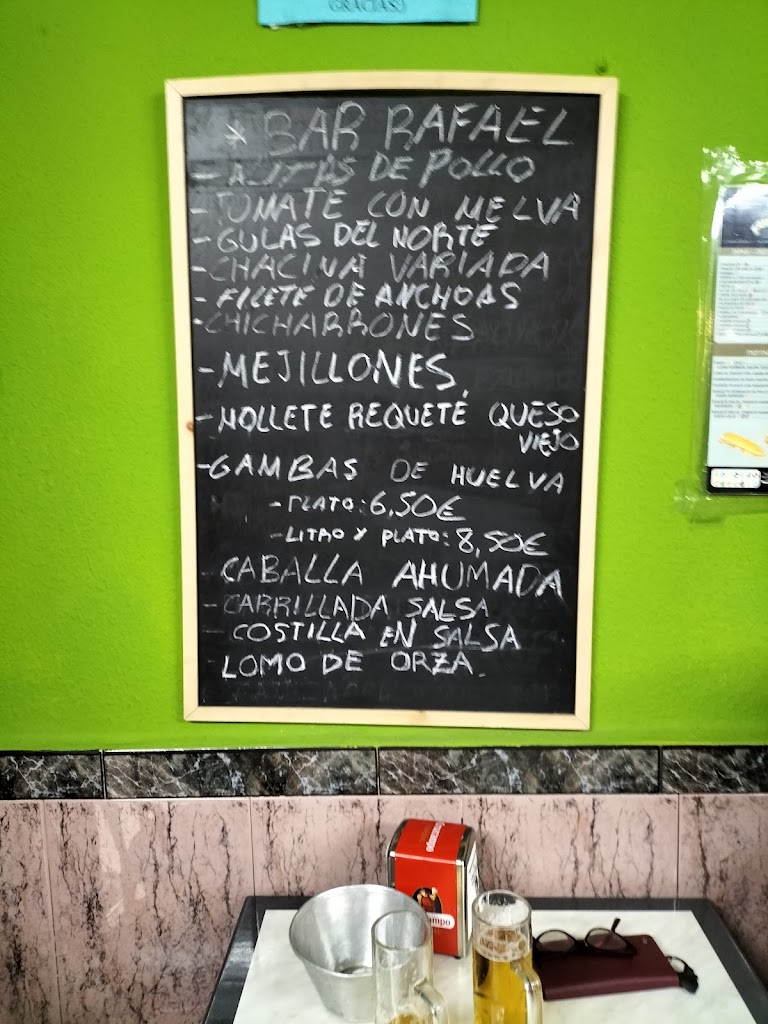 GRACIAS
* BAR RAFAEL
- ALITAS DE POLLO
- TOMATE CON MELVA
- GULAS DEL NORTE
- CHACINA VARIADA
- FILETE DE ANCHOAS
- CHICHARRONES
- MEJILLONES.
- MOLLETE REQUETÉ QUESO
VIEJO
- GAMBAS DE HUELVA
- PLATO: 6,50€
- LITRO Y PLATO: 8,50€
- CABALLA AHUMADA
- CARRILLADA SALSA
- COSTILLA EN SALSA
- LOMO DE ORZA.